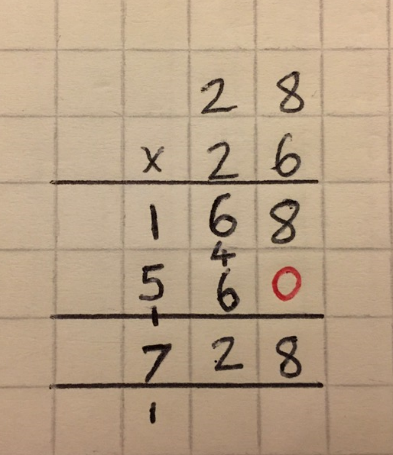 28
x 26
168
4
560
1
728
1